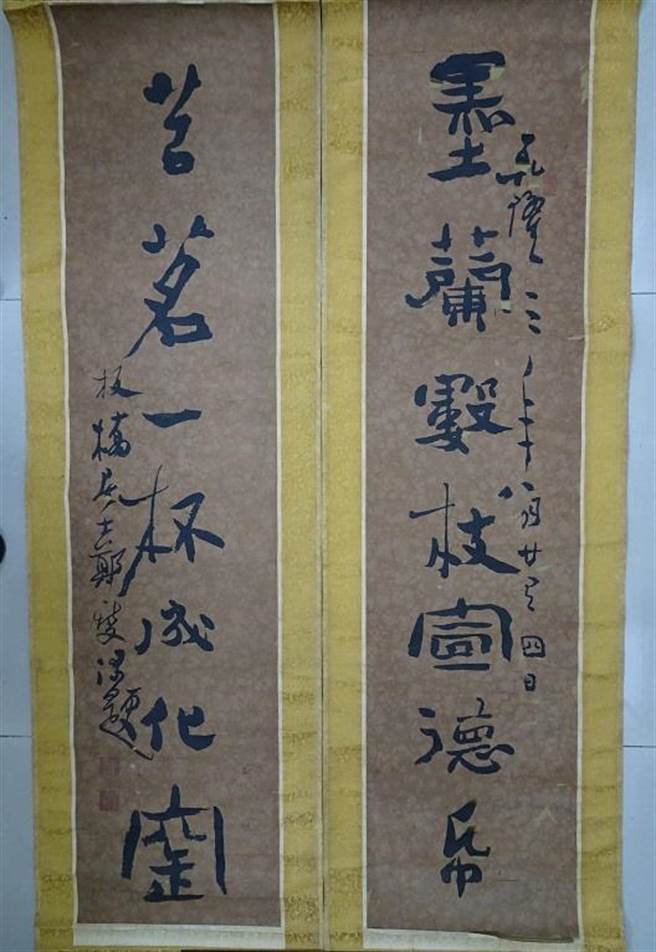 墨蘭數枝宣德帋
乾隆二年八月廿四日
苦茗一杯成化窑
板橋居士鄭燮題